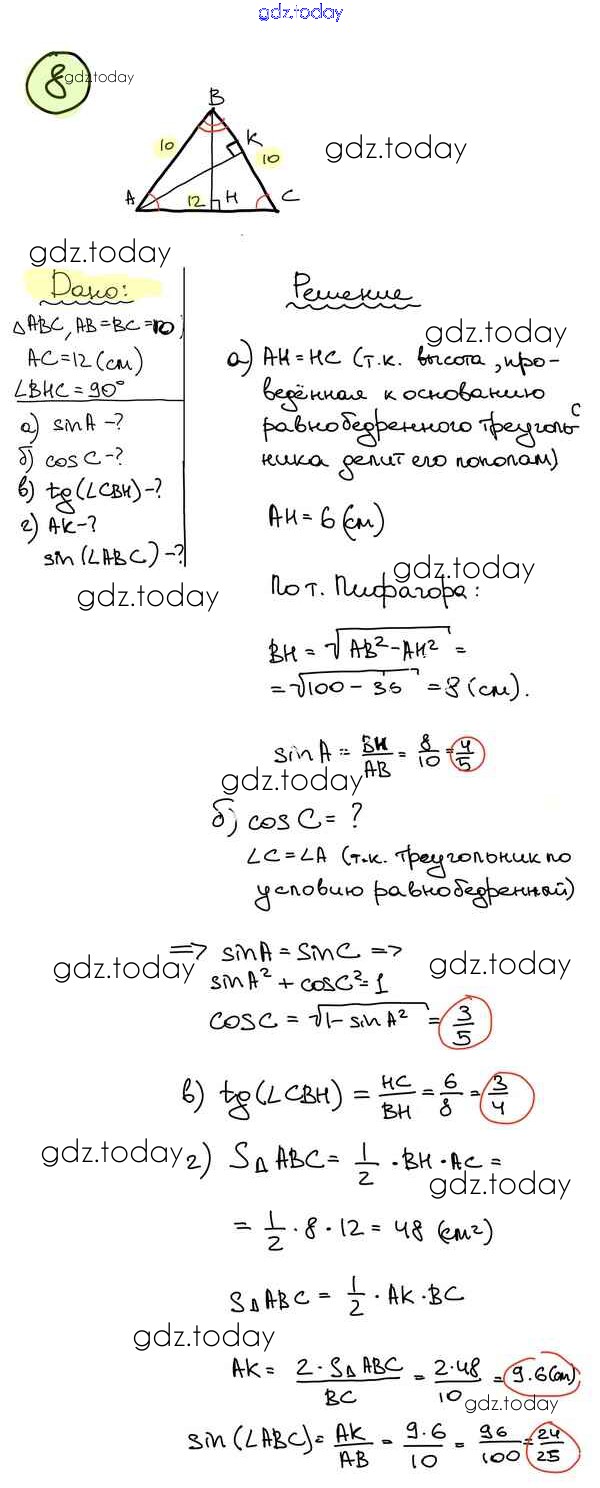 gdz.today
8
gdz.today
B
10
K
10
gdz.today
A
12
H
C
gdz.today
Дано:
Решение
△ABC, AB=BC=10;
AC=12(см)
∠BHC=90°
а) sinA-?
б) cosC-?
в) tg(∠CBH)-?
г) AK-?
sin(∠ABC)-?
gdz.today
gdz.today
а) AH=HC (т.к. высота, про-
ведённая к основанию
равнобедренного треуголь-
ника делит его пополам)
AH=6(см)
gdz.today
По т. Пифагора:
BH = √AB²-AH² =
= √100-36 = 8(см).
sinA = BH/AB = 8/10 = 4/5
gdz.today
б) cosC = ?
∠C=∠A (т.к. треугольник по
условию равнобедренный)
=> sinA = sinC =>
gdz.today
gdz.today
sinA² + cosC²=1
cosC = √1-sinA² = 3/5
в) tg(∠CBH) = HC/BH = 6/8 = 3/4
gdz.today
г) S△ABC = 1/2 · BH · AC =
gdz.today
= 1/2 · 8 · 12 = 48 (см²)
S△ABC = 1/2 · AK · BC
gdz.today
AK = 2·S△ABC/BC = 2·48/10 = 9.6(см)
gdz.today
sin(∠ABC) = AK/AB = 9.6/10 = 96/100 = 24/25